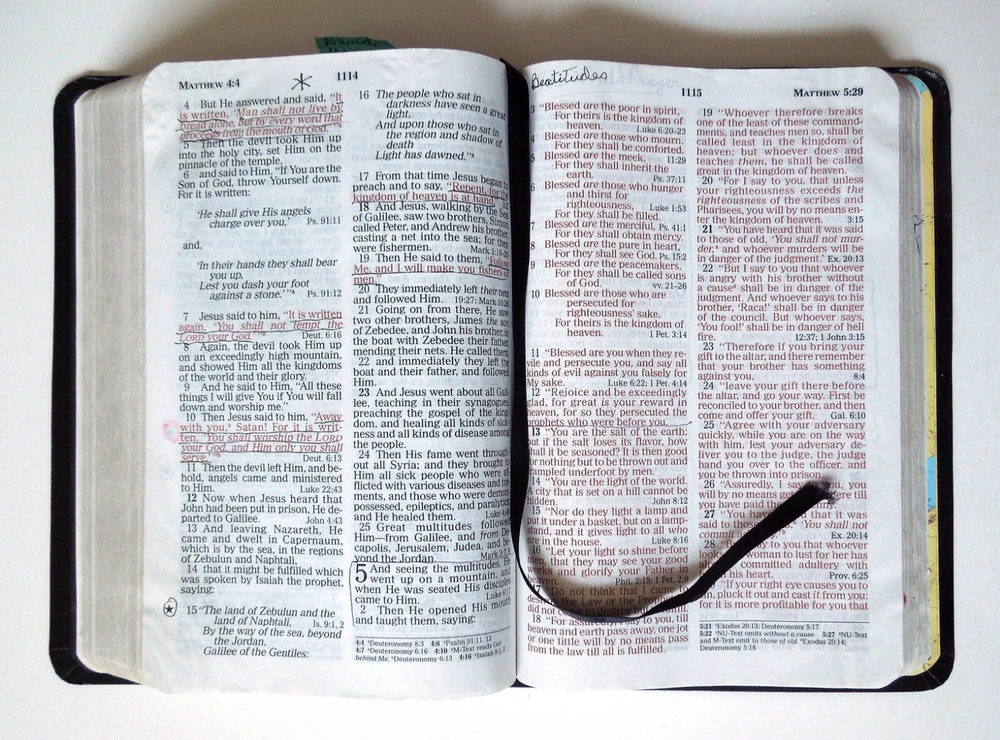 MATTHEW 4:4
1114
4 But He answered and said, "It
is written, 'Man shall not live by
bread alone, but by every word that
proceeds from the mouth of God.'"
5 Then the devil took Him up
into the holy city, set Him on the
pinnacle of the temple,
6 and said to Him, "If You are the
Son of God, throw Yourself down.
For it is written:
'He shall give His angels
charge over you,' Ps. 91:11
and,
'In their hands they shall bear
you up,
Lest you dash your foot
against a stone.'" Ps. 91:12
7 Jesus said to him, "It is written
again, 'You shall not tempt the
LORD your God.'" Deut. 6:16
8 Again, the devil took Him up
on an exceedingly high mountain,
and showed Him all the kingdoms
of the world and their glory.
9 And he said to Him, "All these
things I will give You if You will fall
down and worship me."
10 Then Jesus said to him, "Away
with you, Satan! For it is writ-
ten, 'You shall worship the LORD
your God, and Him only you shall
serve.'" Deut. 6:13
11 Then the devil left Him, and be-
hold, angels came and ministered
to Him. Luke 22:43
12 Now when Jesus heard that
John had been put in prison, He de-
parted to Galilee. John 4:43
13 And leaving Nazareth, He
came and dwelt in Capernaum,
which is by the sea, in the regions
of Zebulun and Naphtali,
14 that it might be fulfilled which
was spoken by Isaiah the prophet,
saying:
15 "The land of Zebulun and the
land of Naphtali, Is. 9:1, 2
By the way of the sea, beyond
the Jordan,
Galilee of the Gentiles:
16 The people who sat in
darkness have seen a great
light,
And upon those who sat in
the region and shadow of
death
Light has dawned."
17 From that time Jesus began to
preach and to say, "Repent, for the
kingdom of heaven is at hand."
18 And Jesus, walking by the Sea
of Galilee, saw two brothers, Simon
called Peter, and Andrew his brother,
casting a net into the sea; for they
were fishermen. Mark 1:16-20
19 Then He said to them, "Follow
Me, and I will make you fishers of
men."
20 They immediately left their nets
and followed Him. 19:27; Mark 10:28
21 Going on from there, He saw
two other brothers, James the son
of Zebedee, and John his brother, in
the boat with Zebedee their father,
mending their nets. He called them,
22 and immediately they left the
boat and their father, and followed
Him.
23 And Jesus went about all Gali-
lee, teaching in their synagogues,
preaching the gospel of the king-
dom, and healing all kinds of sick-
ness and all kinds of disease among
the people.
24 Then His fame went through-
out all Syria; and they brought to
Him all sick people who were af-
flicted with various diseases and tor-
ments, and those who were demon-
possessed, epileptics, and paralytics;
and He healed them. Luke 4:40
25 Great multitudes followed
Him—from Galilee, and from De-
capolis, Jerusalem, Judea, and be-
yond the Jordan.
5 And seeing the multitudes, He
went up on a mountain, and
when He was seated His disciples
came to Him.
2 Then He opened His mouth
and taught them, saying:
4:4 Deuteronomy 8:3 4:6 Psalm 91:11, 12
4:7 Deuteronomy 6:16 4:10 M-Text reads Get
behind Me. Deuteronomy 6:13 4:16 Isaiah 9:1, 2
Beatitudes
1115
MATTHEW 5:29
3 "Blessed are the poor in spirit,
For theirs is the kingdom of
heaven. Luke 6:20-23
4 Blessed are those who mourn,
For they shall be comforted.
5 Blessed are the meek, 11:29
For they shall inherit the
earth. Ps. 37:11
6 Blessed are those who hunger
and thirst for
righteousness, Luke 1:53
For they shall be filled.
7 Blessed are the merciful, Ps. 41:1
For they shall obtain mercy.
8 Blessed are the pure in heart,
For they shall see God. Ps. 15:2
9 Blessed are the peacemakers,
For they shall be called sons
of God. vv. 21–26
10 Blessed are those who are
persecuted for
righteousness' sake,
For theirs is the kingdom of
heaven. 1 Pet. 3:14
11 "Blessed are you when they re-
vile and persecute you, and say all
kinds of evil against you falsely for
My sake. Luke 6:22; 1 Pet. 4:14
12 "Rejoice and be exceedingly
glad, for great is your reward in
heaven, for so they persecuted the
prophets who were before you.
13 "You are the salt of the earth;
but if the salt loses its flavor, how
shall it be seasoned? It is then good
for nothing but to be thrown out and
trampled underfoot by men.
14 "You are the light of the world.
A city that is set on a hill cannot be
hidden. John 8:12
15 "Nor do they light a lamp and
put it under a basket, but on a lamp-
stand, and it gives light to all who
are in the house. Luke 8:16
16 "Let your light so shine before
men, that they may see your good
works and glorify your Father in
heaven. Phil. 2:15; 1 Pet. 2:9
17 "Do not think that I came to
destroy the Law or the Prophets. I
did not come to destroy but
18 "For assuredly, I say to you, till
heaven and earth pass away, one jot
or one tittle will by no means pass
from the law till all is fulfilled.
19 "Whoever therefore breaks
one of the least of these command-
ments, and teaches men so, shall be
called least in the kingdom of
heaven; but whoever does and
teaches them, he shall be called
great in the kingdom of heaven.
20 "For I say to you, that unless
your righteousness exceeds the
righteousness of the scribes and
Pharisees, you will by no means en-
ter the kingdom of heaven. 3:15
21 "You have heard that it was said
to those of old, 'You shall not mur-
der, and whoever murders will be
in danger of the judgment.' Ex. 20:13
22 "But I say to you that whoever
is angry with his brother without
a cause shall be in danger of the
judgment. And whoever says to his
brother, 'Raca!' shall be in danger
of the council. But whoever says,
'You fool!' shall be in danger of hell
fire. 12:37; 1 John 3:15
23 "Therefore if you bring your
gift to the altar, and there remember
that your brother has something
against you, 8:4
24 "leave your gift there before
the altar, and go your way. First be
reconciled to your brother, and then
come and offer your gift. Gal. 6:10
25 "Agree with your adversary
quickly, while you are on the way
with him, lest your adversary de-
liver you to the judge, the judge
hand you over to the officer, and
you be thrown into prison.
26 "Assuredly, I say to you, you
will by no means get there till
you have paid the penny.
27 "You have that it was
said to those 'You shall not
commit Ex. 20:14
28 "But I say to you that whoever
looks woman to lust for her has
committed adultery with
his heart. Prov. 6:25
"If your right eye causes you to
pluck it out and cast it from you;
for it is more profitable for you that
5:21 Exodus 20:13; Deuteronomy 5:17
5:22 NU-Text omits without a cause 5:27 NU-Text
and M-Text omit to those of old. Exodus 20:14;
Deuteronomy 5:18